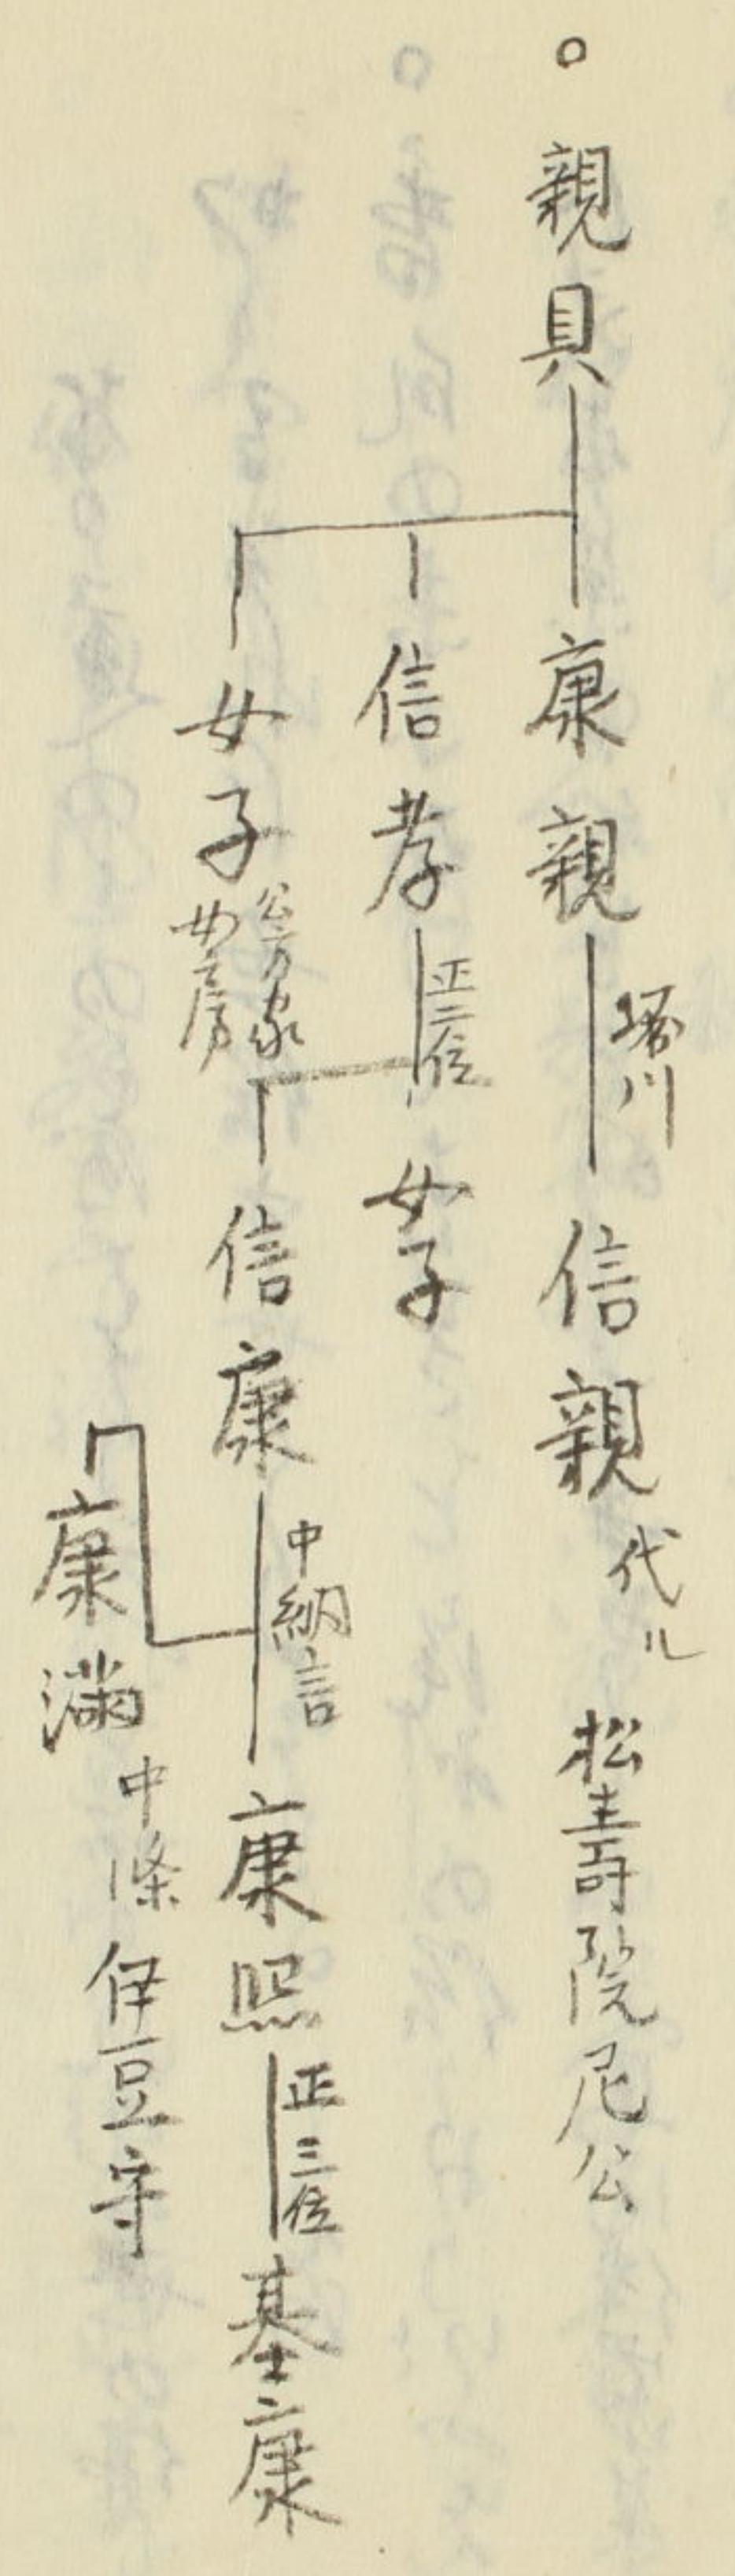 ○親具
康親
堀川
信親
代ル
松壽院尼公
信孝
正二位
女子
女子
公方家
女房
信康
中納言
康照
正三位
基康
康満
中條伊豆守